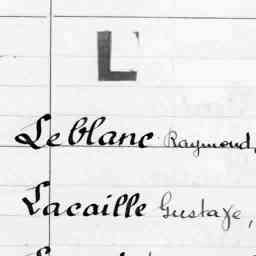 L
Leblanc Raymond,
Lacaille Gustave,